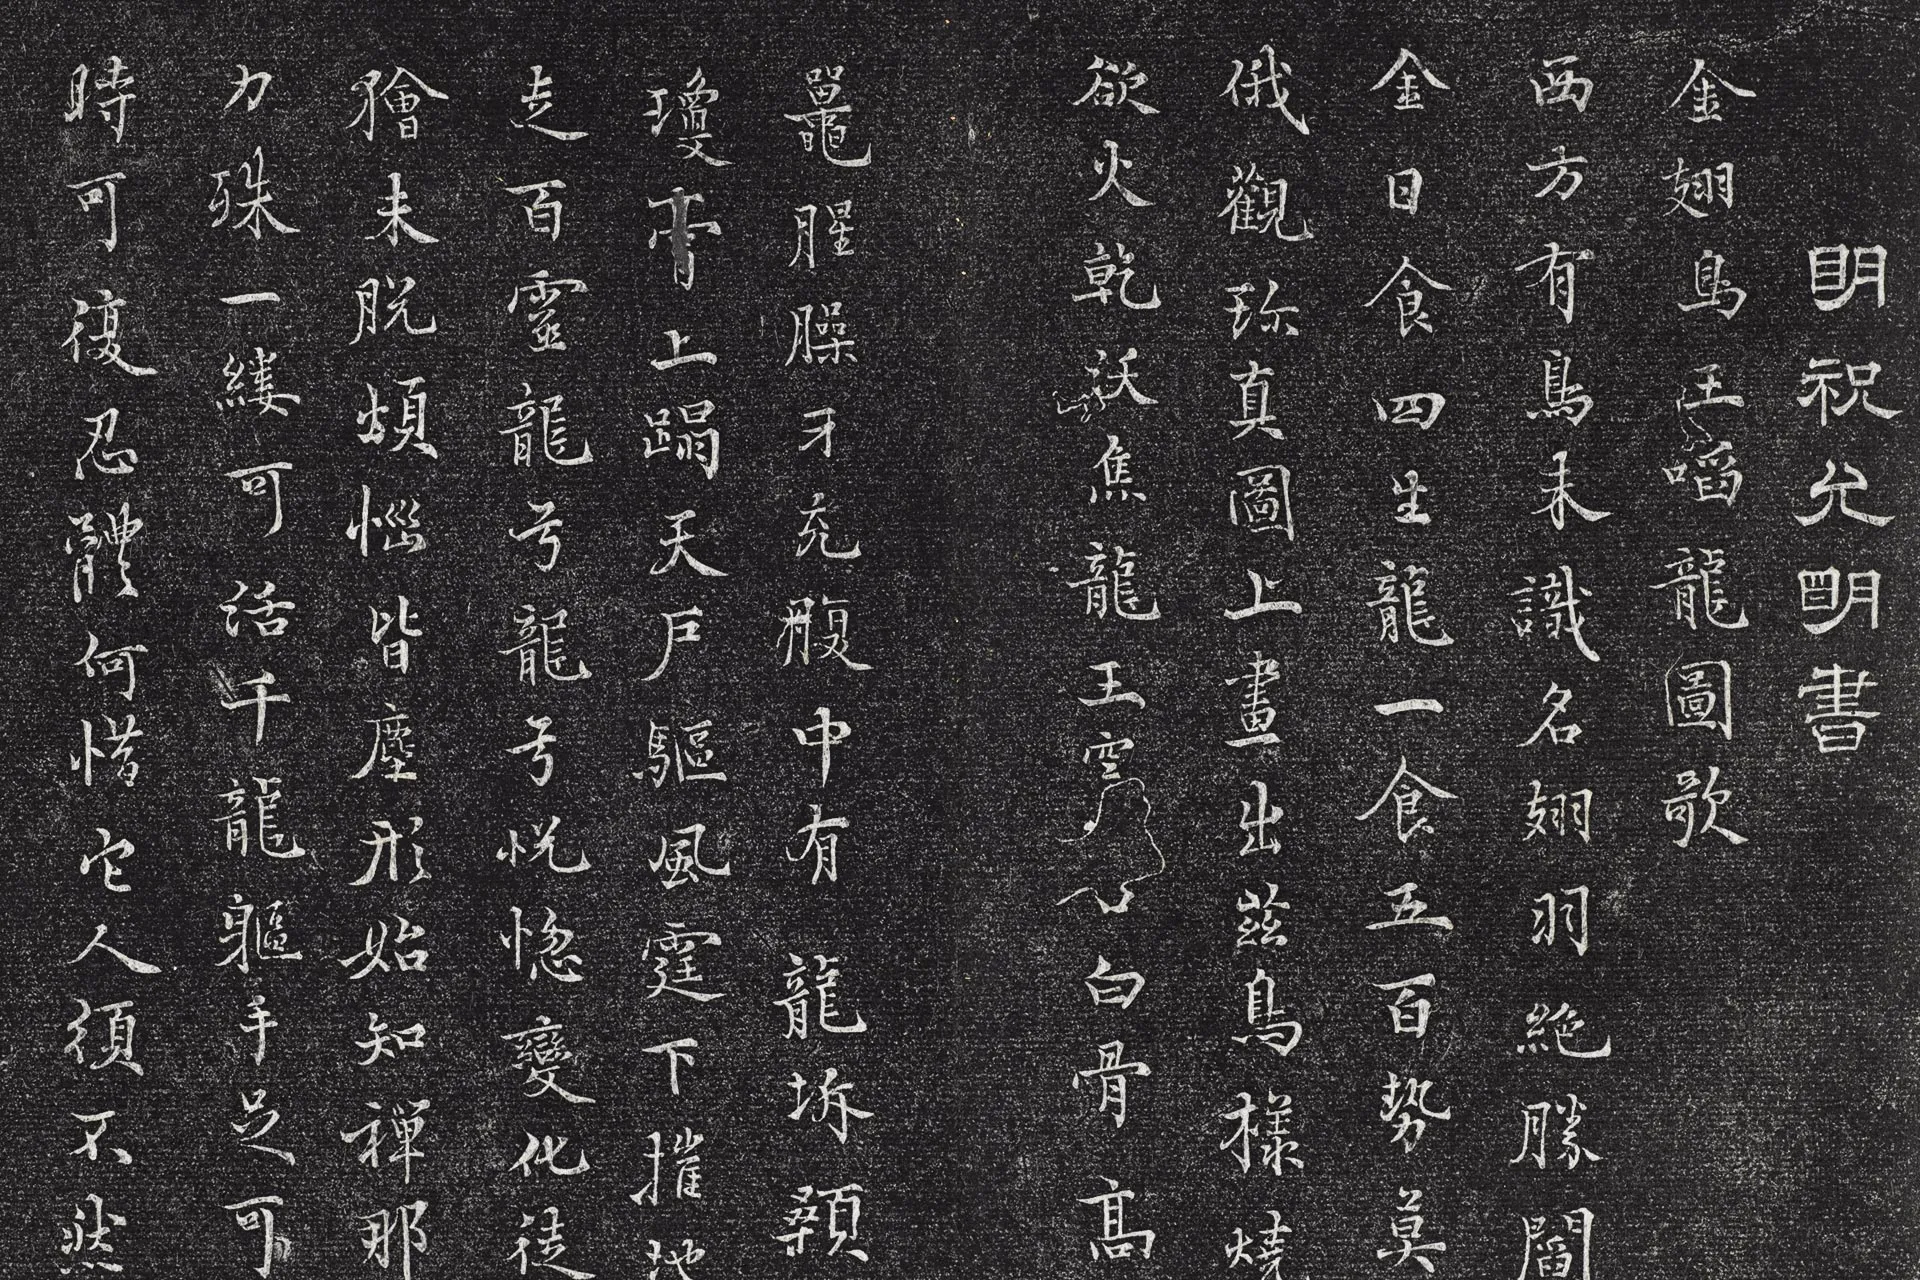 明祝允明書
金翅鳥王啗龍圖歌
西方有鳥未識名翅羽絶勝閻
金日食四生龍一食五百勢莫
俄觀珎真圖上畫出茲鳥樣燒
欲火乾沃焦龍王宮 白骨高
鼉腥臊牙充腹中有龍坼顙
瓊膏上蹋天戶驅風霆下摧地
走百靈龍兮龍兮恍惚變化徒
獪未脫煩惱皆塵形始知禪那
力殊一縷可活千龍軀手足可
時可復忍體何惜它人須不然